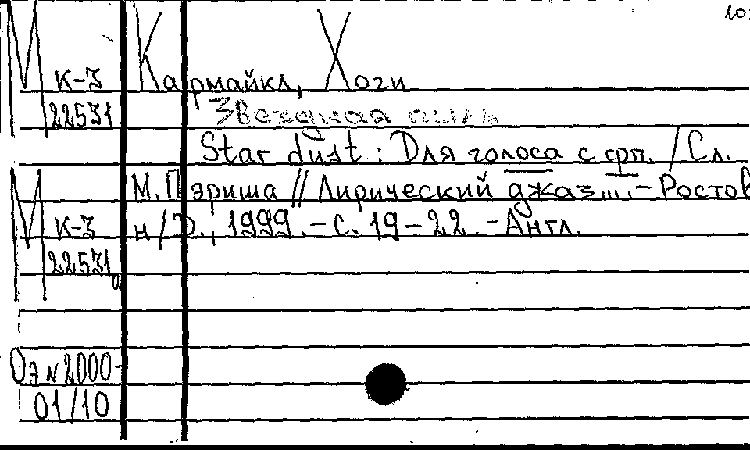 М К-3
22531
Кармайкл, Хоги
Звездная пыль
Star dust : Для голоса с ф-п. / Сл.
М. Пэриша // Лирический джаз... - Ростов
н/Д., 1999. - С. 19-22. - Англ.
М К-3
22531
а
ОЭ N 2000-
01/10